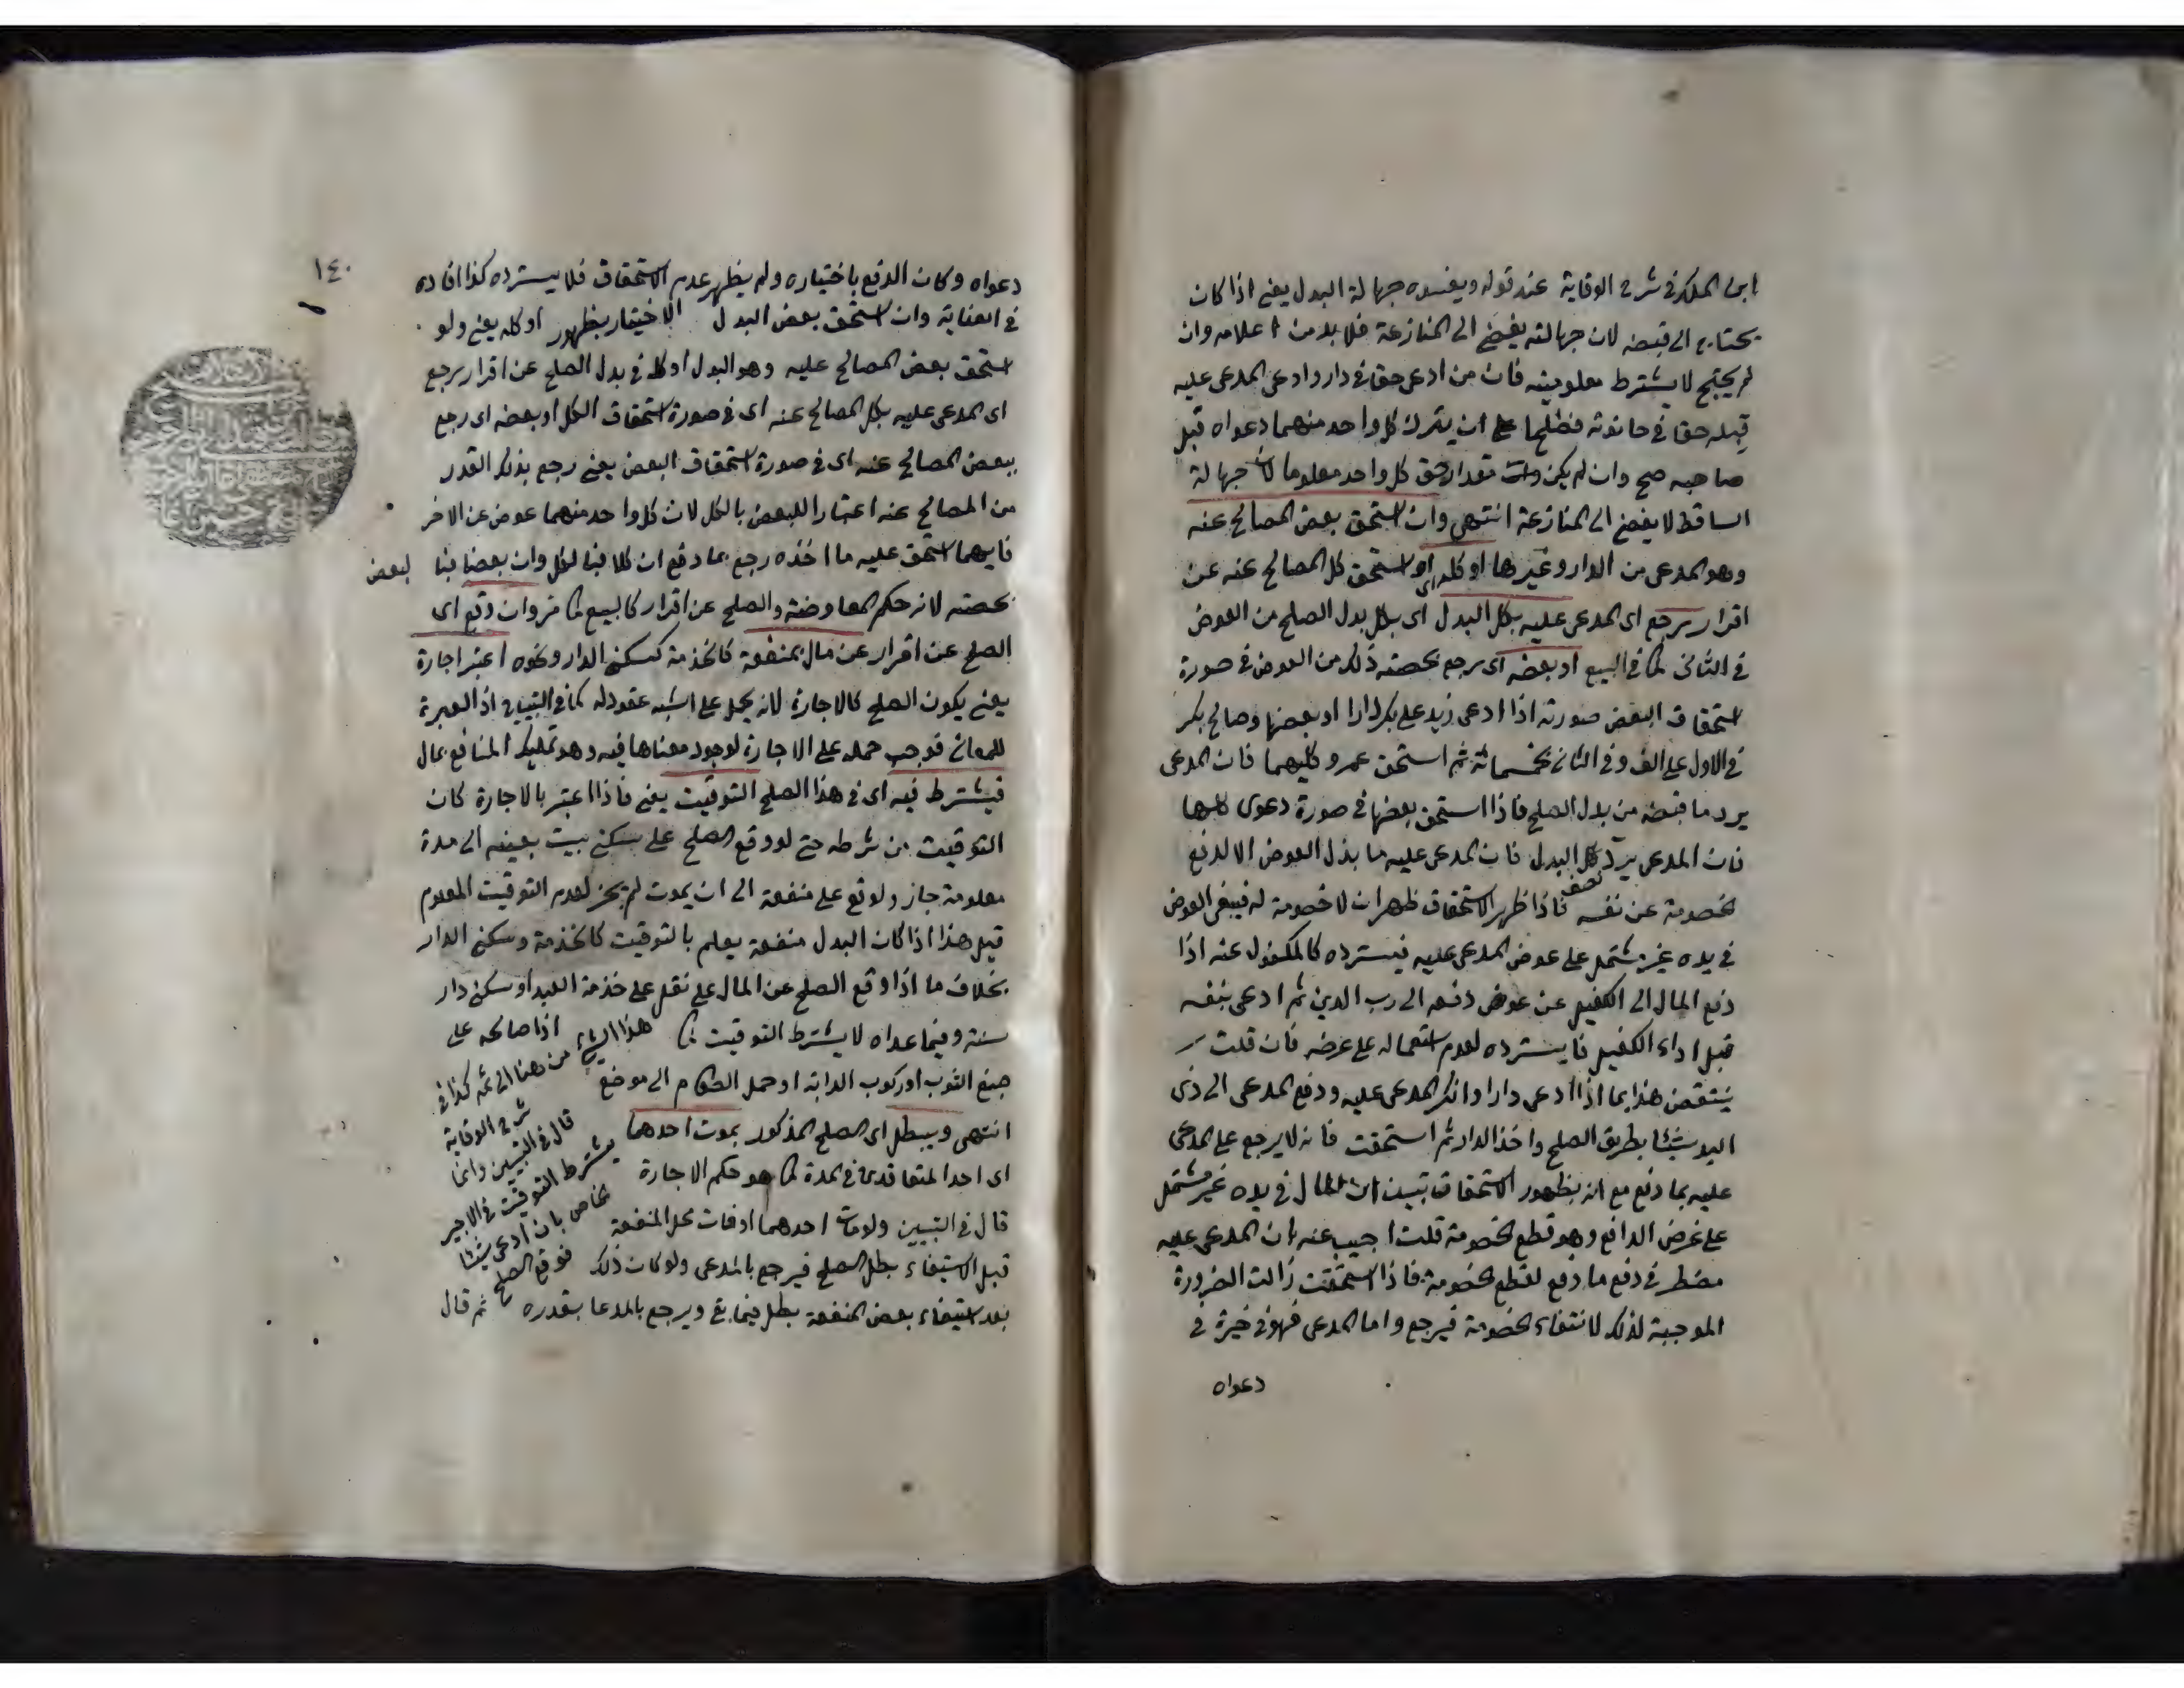 ابن الملك في شرح الوقاية عند قوله ويفسده جهالة البدل يعني اذا كان
يحتاج الى قبضه لان جهالته يفضي الى المنازعة فلا بد من اعلامه وان
لم يحتج لا يشترط معلوميته فان من ادعى حقا في دار وادعى المدعى عليه
قبله حقا في حانوته فصلحا على ان يترك كل واحد منهما دعواه قبل
صاحبه صح وان لم يكن مقدار حق كل واحد معلوما لان جهالة
الساقط لا يفضي الى المنازعة انتهى وان استحق بعض المصالح عنه
وهو المدعى من الدار وغيرها او كله اي او استحق كل المصالح عنه عن
اقرار يرجع اى المدعى عليه بكل البدل اى بكل بدل الصلح من العوض
في الثاني كما في البيع او بعضه اى يرجع بحصته ذلك من العوض في صورة
استحقاق البعض صورته اذا ادعى زيد على بكر دارا او بعضها وصالح بكر
في الاول على الف وفي الثاني بخمسمائة ثم استحق عمرو كليهما فان المدعى
يرد ما قبضه من بدل الصلح فاذا استحق بعضها في صورة دعوى كلها
فان المدعى يرد البدل فان المدعى عليه ما بذل العوض الا لدفع
نصف
خصومة عن نفسه فاذا ظهر الاستحقاق ظهر ان لا خصومة له فيبقى العوض
في يده غير مشتمل على عوض المدعى عليه فيسترده كالمكفول عنه اذا
دفع المال الى الكفيل عن عوض دفعه الى رب الدين ثم ادعى بنفسه
قبل اداء الكفيل فا يسترده لعدم اشتماله على عرضه فان قلت
ينتقض هذا بما اذا ادعى دارا وانكر المدعى عليه ودفع المدعى الى ذى
اليد شيئا بطريق الصلح واخذ الدار ثم استحقت فانه لا يرجع على المدعى
عليه بما دفع مع انه بظهور الاستحقاق تبين ان المال في يده غير مشتمل
على غرض الدافع وهو قطع خصومة قلت اجيب عنه بان المدعى عليه
مضطر في دفع ما دفع لقطع خصومة فاذا استحقت زالت الضرورة
الموجبة لذلك لانتفاء خصومة فيرجع واما المدعى فهو في خيرة في
دعواه
١٤٠
دعواه وكان الدفع باختياره ولم يظهر عدم الاستحقاق فلا يسترده كذا افاده
في العناية وان استحق بعض البدل الاختيار بظهور او كله يعني ولو
استحق بعض المصالح عليه وهو البدل او كله في بدل الصلح عن اقرار يرجع
اى المدعى عليه بكل المصالح عنه اى في صورة استحقاق الكل او بعضه اى رجع
ببعض المصالح عنه اى في صورة استحقاق البعض يعني رجع بذلك القدر
من المصالح عنه اعتبارا للبعض بالكل لان كل واحد منهما عوض عن الاخر
فايهما استحق عليه ما اخذه رجع بما دفع ان كلا فبالكل وان بعضا فبا لبعض
بحصته لانه حكم المعاوضة والصلح عن اقرار كالبيع كما مر وان وقع اى
الصلح عن اقرار عن مال بمنفعة كالخدمة كسكنى الدار ونحوه اعتبر اجارة
يعني يكون الصلح كالاجارة لانه يحمل على اشبه عقود له كما في التبيين اذ العبرة
للمعاني فوجب حمله على الاجارة لوجود معناها فيه وهو تمليك المنافع بمال
فيشترط فيه اى في هذا الصلح التوقيت يعني فاذا اعتبر بالاجارة كان
التوقيت من شرطه حتى لو وقع الصلح على سكنى بيت بعينه الى مدة
معلومة جاز ولو وقع على منفعة الى ان يموت لم يجز لعدم التوقيت المعلوم
قيل هذا اذا كان البدل منفعة يعلم بالتوقيت كالخدمة وسكنى الدار
بخلاف ما اذا وقع الصلح عن المال على نقل على خدمة العبد او سكنى دار
سنة وفيما عداه لا يشترط التوقيت كما اذا صالحه على
صبغ الثوب او ركوب الدابة او حمل الطعام الى موضع
انتهى ويبطل اى الصلح المذكور بموت احدهما
اى احد المتعاقدين في المدة كما هو حكم الاجارة
قال في التبيين ولو مات احدهما او فات محل المنفعة
قبل الاستيفاء بطل الصلح فيرجع بالمدعى ولو كان ذلك
بعد استيفاء بعض المنفعة بطل فيما بقي ويرجع بالمدعا بقدره ثم قال
هذا الشيء من هنا الى ثمه كذا في
شرح الوقاية
قال في التبيين وانما
يشترط التوقيت في الاجير
الخاص بان ادعى شيئا
فوقع الصلح